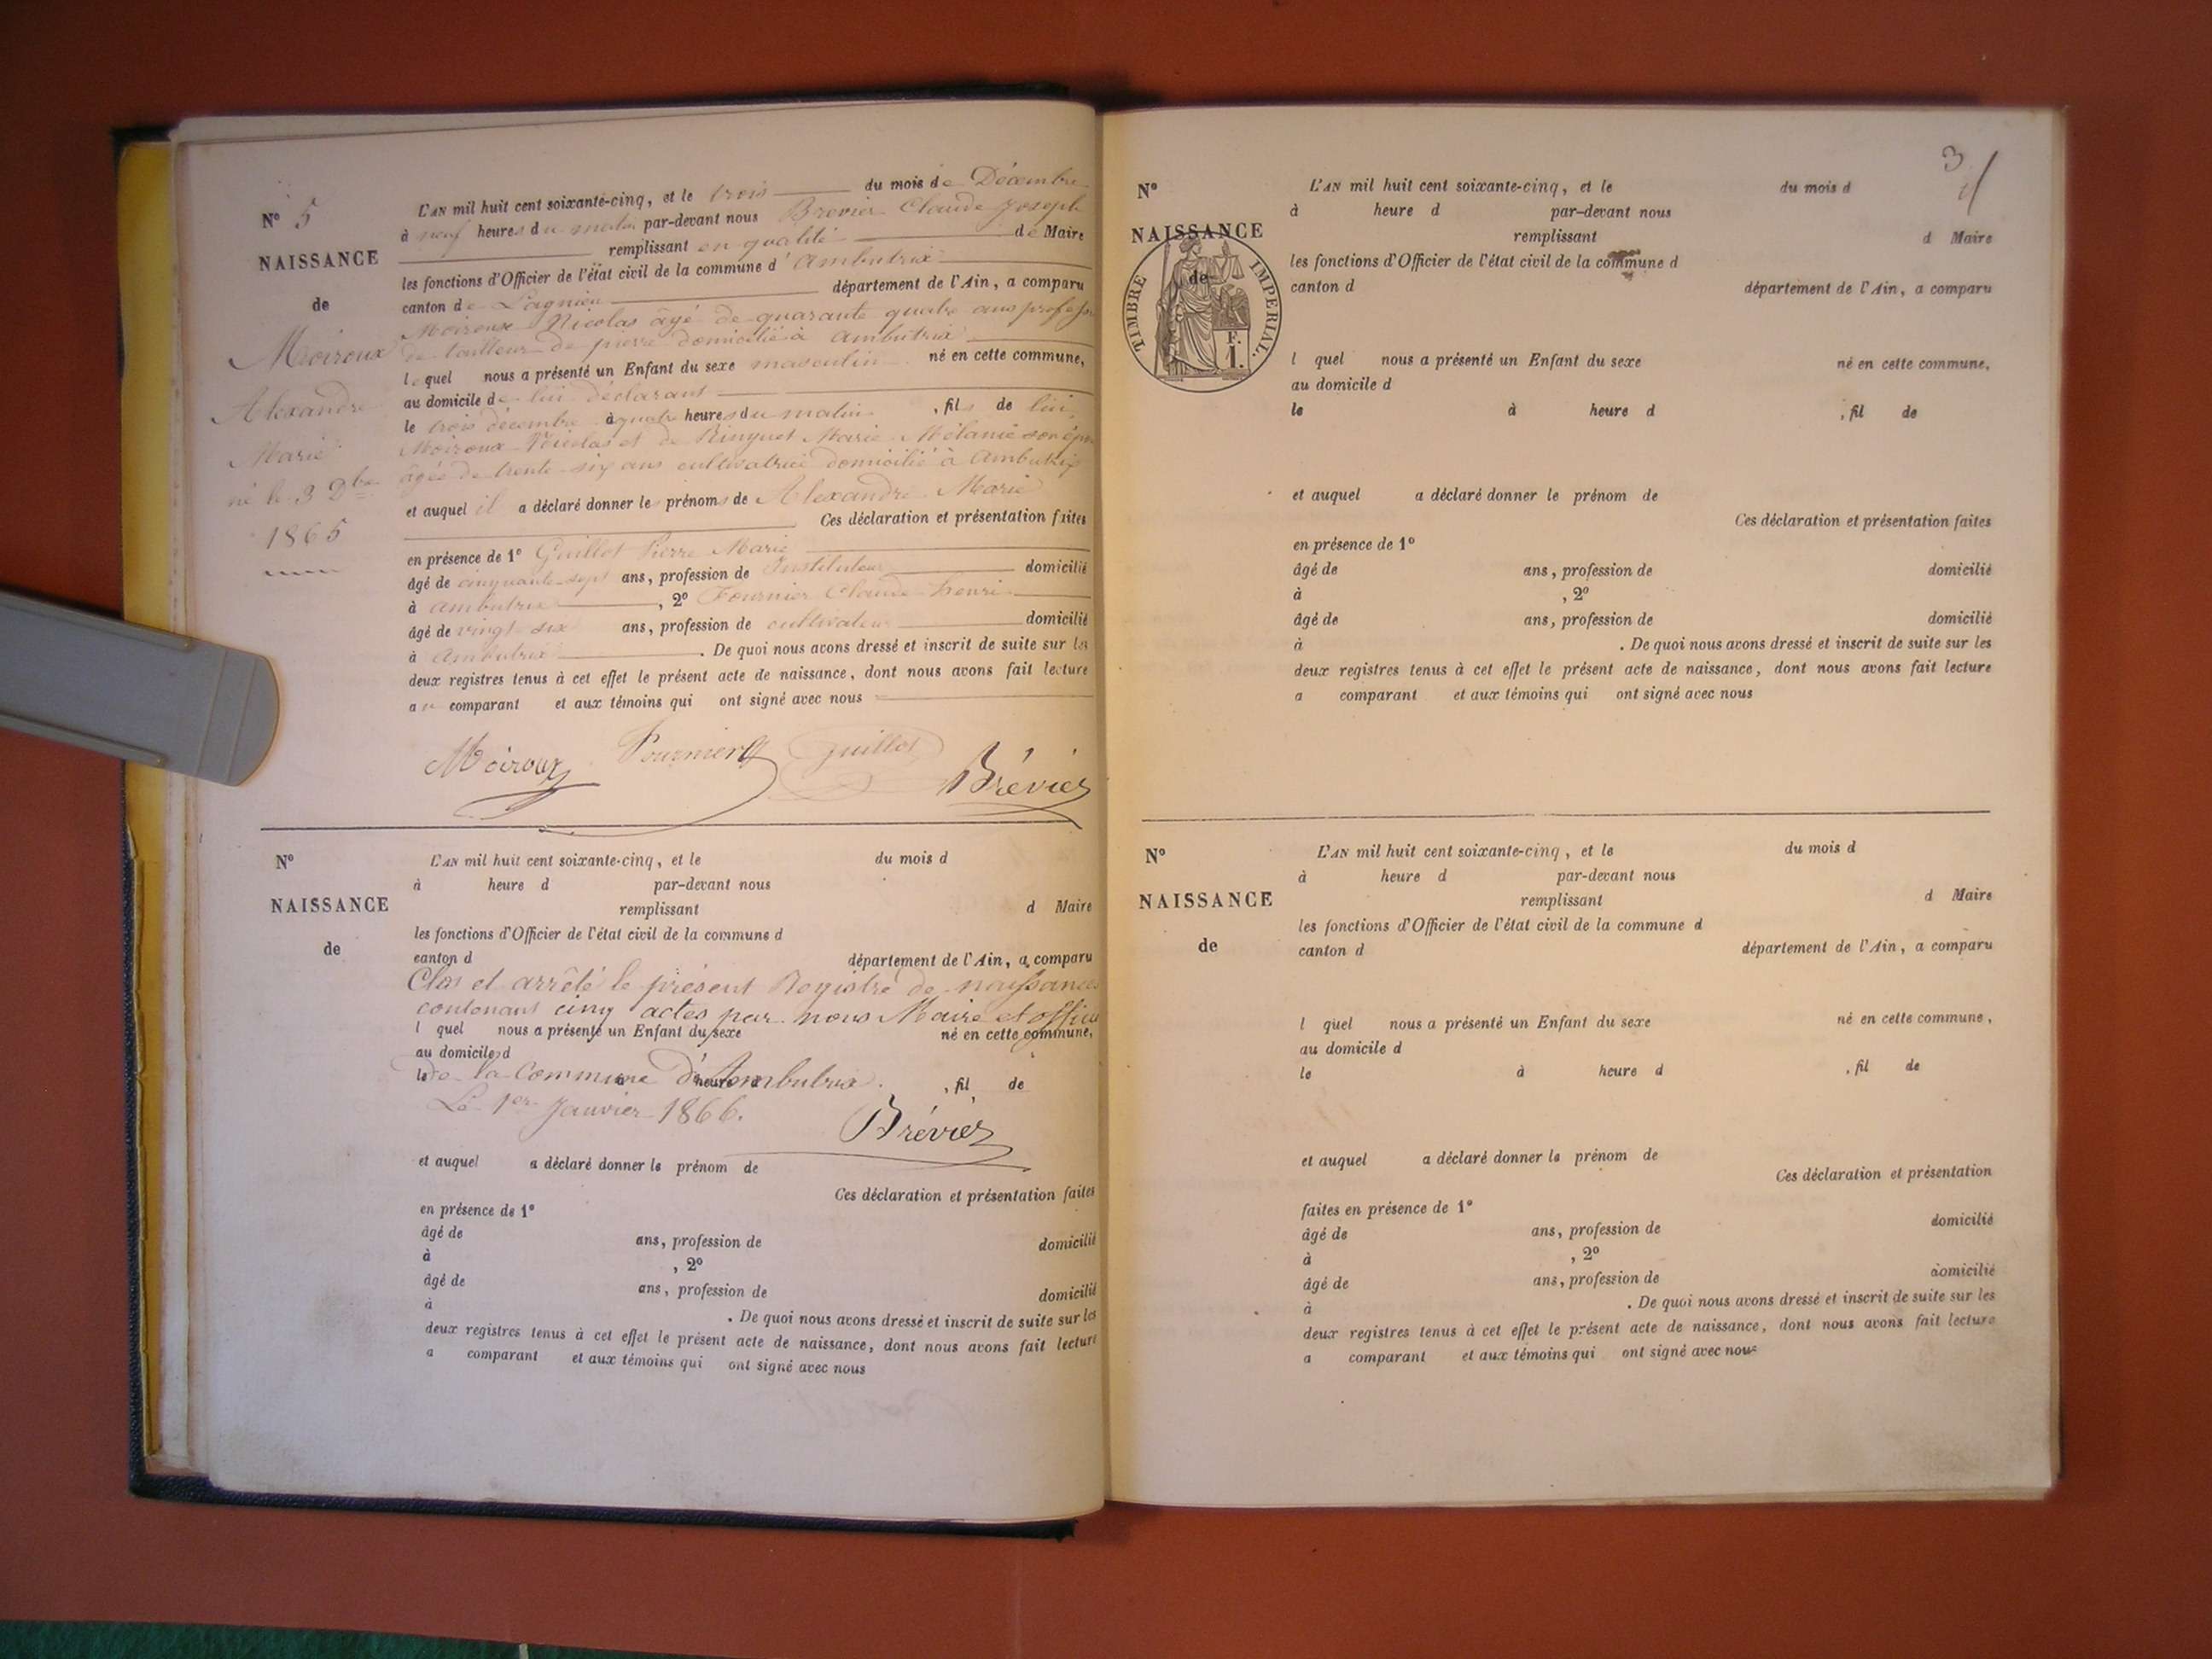 N° 5
NAISSANCE
de
Moiroux
Alexandre
Marie
né le 3 Dbre
1865
L'AN mil huit cent soixante-cinq, et le trois du mois de Décembre
à neuf heures du matin par-devant nous Brevier Claude Joseph
remplissant en qualité de Maire
les fonctions d'Officier de l'état civil de la commune d'Ambutrix
canton de Lagnieu département de l'Ain, a comparu
Moiroux Nicolas âgé de quarante quatre ans profession
de tailleur de pierre domicilié à Ambutrix
lequel nous a présenté un Enfant du sexe masculin né en cette commune,
au domicile de lui déclarant
le trois décembre à quatre heures du matin, fils de lui
Moiroux Nicolas et de Ringuet Marie Mélanie son
âgée de trente-six ans cultivatrice domicilié à Ambutrix
et auquel il a déclaré donner les prénoms de Alexandre Marie
Ces déclaration et présentation faites
en présence de 1° Guillot Pierre Marie
âgé de cinquante-sept ans, profession de Instituteur domicilié
à Ambutrix, 2° Fournier Claude Henri
âgé de vingt six ans, profession de cultivateur domicilié
à Ambutrix. De quoi nous avons dressé et inscrit de suite sur les
deux registres tenus à cet effet le présent acte de naissance, dont nous avons fait lecture
au comparant et aux témoins qui ont signé avec nous
Moiroux Fournier Guillot Brévier
N°
NAISSANCE
de
L'AN mil huit cent soixante-cinq, et le du mois d
à heure d par-devant nous
remplissant d Maire
les fonctions d'Officier de l'état civil de la commune d
canton d département de l'Ain, a comparu
Clos et arrêté le présent Registre de naissances
contenant cinq actes par nous Maire et officier
l quel nous a présenté un Enfant du sexe né en cette commune,
au domicile d
le à heure d , fil de
de la Commune d'Ambutrix.
Le 1er Janvier 1866.
Brévier
et auquel a déclaré donner le prénom de
Ces déclaration et présentation faites
en présence de 1°
âgé de ans, profession de domicilié
à , 2°
âgé de ans, profession de domicilié
à . De quoi nous avons dressé et inscrit de suite sur les
deux registres tenus à cet effet le présent acte de naissance, dont nous avons fait lecture
a comparant et aux témoins qui ont signé avec nous
3
N°
NAISSANCE
de
TIMBRE IMPERIAL.
F.
1.
L'AN mil huit cent soixante-cinq, et le du mois d
à heure d par-devant nous
remplissant d Maire
les fonctions d'Officier de l'état civil de la commune d
canton d département de l'Ain, a comparu
l quel nous a présenté un Enfant du sexe né en cette commune,
au domicile d
le à heure d , fil de
et auquel a déclaré donner le prénom de
Ces déclaration et présentation faites
en présence de 1°
âgé de ans, profession de domicilié
à , 2°
âgé de ans, profession de domicilié
à . De quoi nous avons dressé et inscrit de suite sur les
deux registres tenus à cet effet le présent acte de naissance, dont nous avons fait lecture
a comparant et aux témoins qui ont signé avec nous
N°
NAISSANCE
de
L'AN mil huit cent soixante-cinq, et le du mois d
à heure d par-devant nous
remplissant d Maire
les fonctions d'Officier de l'état civil de la commune d
canton d département de l'Ain, a comparu
l quel nous a présenté un Enfant du sexe né en cette commune,
au domicile d
le à heure d , fil de
et auquel a déclaré donner le prénom de
Ces déclaration et présentation
faites en présence de 1°
âgé de ans, profession de domicilié
à , 2°
âgé de ans, profession de domicilié
à . De quoi nous avons dressé et inscrit de suite sur les
deux registres tenus à cet effet le présent acte de naissance, dont nous avons fait lecture
a comparant et aux témoins qui ont signé avec nous